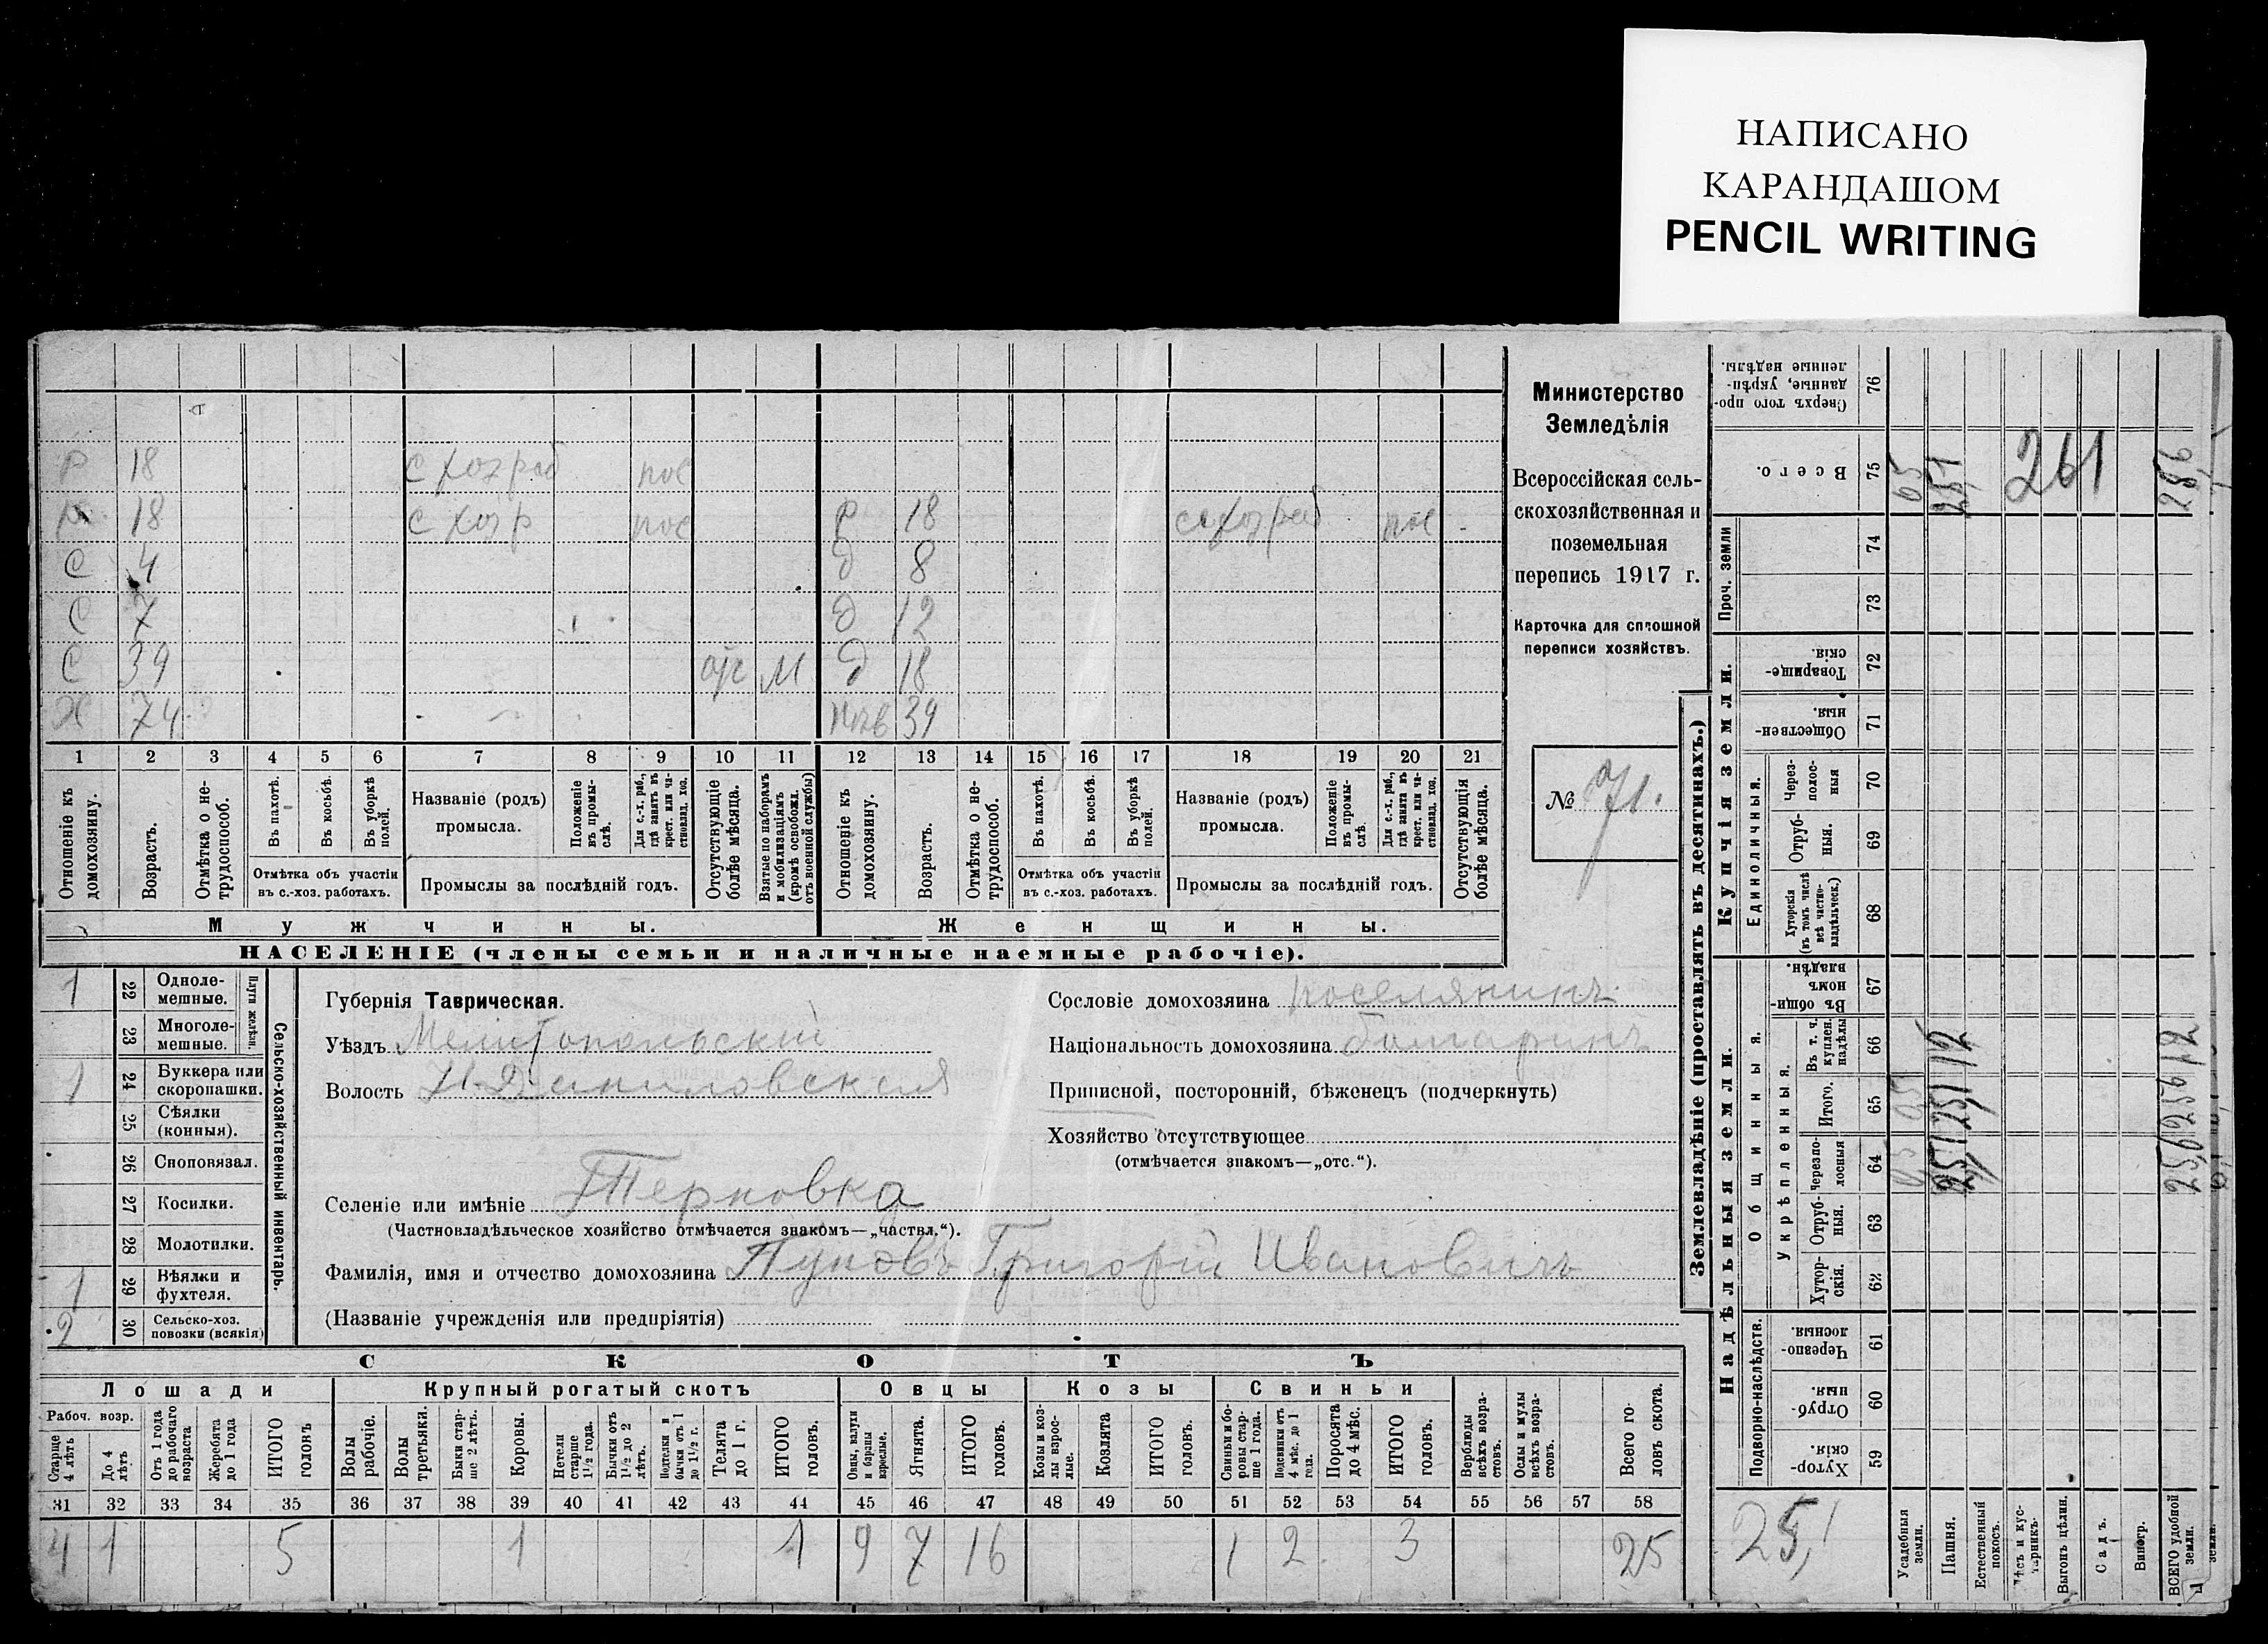 НАПИСАНО
КАРАНДАШОМ
PENCIL WRITING
Р 18 с хоз раб пос
18 с хоз р пос Р 18 с хоз раб пос
С 4 д 8
С 7 д 12
С 39 отс М д 18
Х 74 39
1 2 3 4 5 6 7 8 9 10 11 12 13 14 15 16 17 18 19 20 21
Отношеніе къ домохозяину.
Возрастъ.
Отмѣтка о не-
трудоспособ.
Въ пахотѣ.
Въ косьбѣ.
Въ уборкѣ
полей.
Отмѣтка объ участіи
въ с.-хоз. работахъ.
Названіе (родъ)
промысла.
Положеніе
въ промы-
слѣ.
Для с.-х. раб.,
гдѣ занятъ въ
крест. или ча-
стновлад. хоз.
Промыслы за послѣдній годъ.
Отсутствующіе
болѣе мѣсяца.
Взятые по наборамъ
и мобилизаціямъ
(кромѣ освобожд.
отъ военной службы)
Отношеніе къ
домохозяину.
Возрастъ.
Отмѣтка о не-
трудоспособ.
Въ пахотѣ.
Въ косьбѣ.
Въ уборкѣ
полей.
Отмѣтка объ участіи
въ с.-хоз. работахъ.
Названіе (родъ)
промысла.
Положеніе
въ промы-
слѣ.
Для с.-х. раб.,
гдѣ занята въ
крест. или ча-
стновлад. хоз.
Промыслы за послѣдній годъ.
Отсутствующія
болѣе мѣсяца.
Мужчины.
Женщины.
НАСЕЛЕНІЕ (члены семьи и наличные наемные рабочіе).
Министерство
Земледѣлія
Всероссійская сель-
скохозяйственная и
поземельная
перепись 1917 г.
Карточка для сплошной
переписи хозяйствъ.
№ 71.
1 22 Одноле-
мешные.
23 Многоле-
мешные.
Плуги желѣзн.
1 24 Буккера или
скоропашки.
25 Сѣялки
(конныя).
26 Сноповязал.
27 Косилки.
28 Молотилки.
1 29 Вѣялки и
фухтеля.
2 30 Сельско-хоз.
повозки (всякія)
Сельско-хозяйственный инвентарь.
Губернія Таврическая.
Уѣздъ Мелитопольскій
Волость Н-Даниловская
Селеніе или имѣніе Терновка
(Частновладѣльческое хозяйство отмѣчается знакомъ—„частвл.“).
Фамилія, имя и отчество домохозяина Пуновъ Григорій Ивановичъ
(Названіе учрежденія или предпріятія)
Сословіе домохозяина поселянинъ
Національность домохозяина болгаринъ
Приписной, посторонній, бѣженецъ (подчеркнуть)
Хозяйство отсутствующее
(отмѣчается знакомъ—„отс.“).
СКОТЪ
Лошади
Крупный рогатый скотъ
Овцы
Козы
Свиньи
Рабоч. возр.
Старше
4 лѣтъ
До 4
лѣтъ
Отъ 1 года
до рабочаго
возраста
Жеребята
до 1 года
ИТОГО
головъ
Волы
рабочіе.
Волы
третьяки.
Быки стар-
ше 2 лѣтъ.
Коровы.
Нетели
старше
1½ года.
Бычки отъ
1½ до 2
лѣтъ.
Подтелки и
бычки отъ 1
до 1½ г.
Телята
до 1 г.
ИТОГО
головъ.
Овцы, валухи
и бараны
взрослые.
Ягнята.
ИТОГО
головъ.
Козы и коз-
лы взрос-
лые.
Козлята
ИТОГО
головъ.
Свиньи и бо-
ровы стар-
ше 1 года.
Подсвинки отъ
4 мѣс. до 1
года.
Поросята
до 4 мѣс.
ИТОГО
головъ.
Верблюды
всѣхъ возра-
стовъ.
Ослы и мулы
всѣхъ возра-
стовъ.
Всего го-
ловъ скота.
31 32 33 34 35 36 37 38 39 40 41 42 43 44 45 46 47 48 49 50 51 52 53 54 55 56 57 58
4 1 5 1 1 9 7 16 1 2 3 25
Землевладѣніе (проставлять въ десятинахъ.)
Надѣльныя земли.
Купчія земли.
Проч. земли
Подворно-наслѣдств.
Общинныя.
Укрѣпленныя.
Единоличныя.
Сверхъ того про-
данные, укрѣп-
ленные надѣлы.
76
Всего.
75
74
73
Товарище-
скія.
72
Обществен-
ныя.
71
Через-
полос-
ныя
70
Отруб-
ныя.
69
Хуторскія
(въ томъ числѣ
всѣ частно-
владѣльческ.)
68
Въ общи-
номъ
владѣн.
67
Въ т. ч.
куплен.
надѣлы
66
Итого.
65
Черезпо-
лосныя
64
Отруб-
ныя.
63
Хутор-
скія.
62
Черезпо-
лосныя.
61
Отруб-
ныя.
60
Хутор-
скія.
59
261
25,1
Усадебныя
земли.
Пашня.
Естественный
покосъ.
Лѣсъ и кус-
тарникъ.
Выгонъ цѣлин.
Садъ.
Виногр.
ВСЕГО удобной
земли.